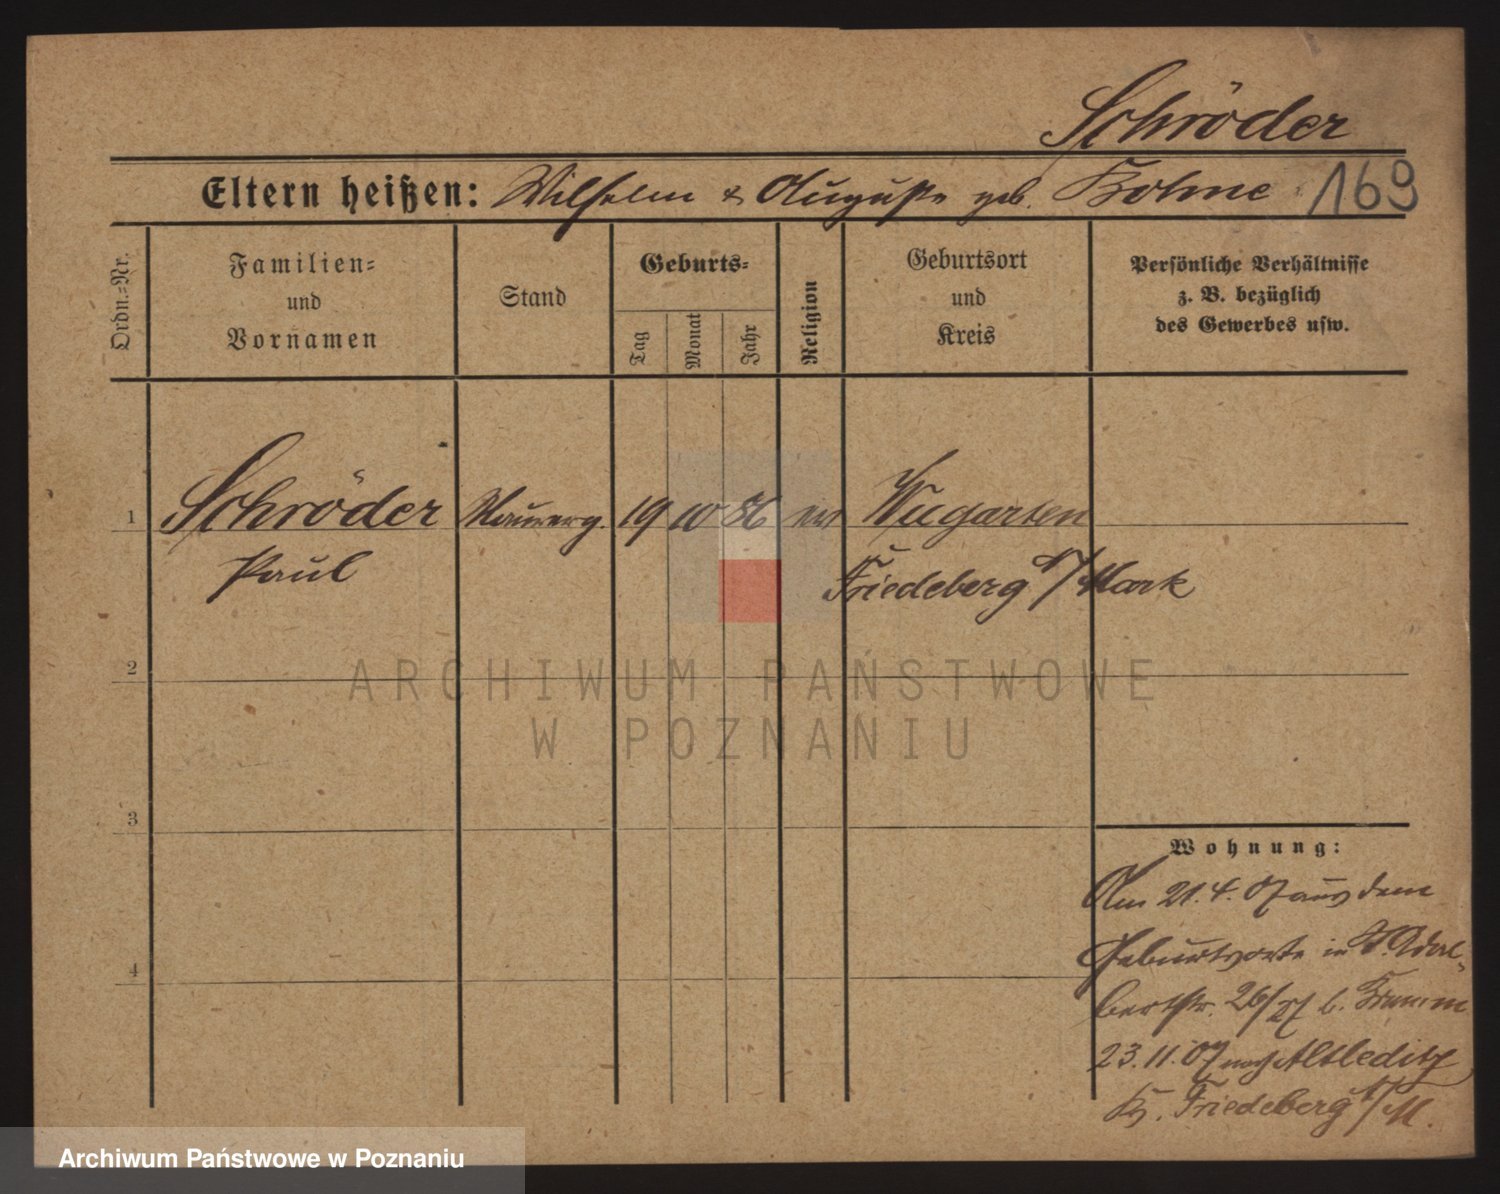 Schröder
Eltern heißen: Wilhelm & Auguste geb. Bohne 169
Ordn.=Nr.
Familien=
und
Vornamen
Stand
Geburts=
Tag
Monat
Jahr
Religion
Geburtsort
und
Kreis
Persönliche Verhältnisse
z. B. bezüglich
des Gewerbes usw.
1 Schröder Maurerg. 19 10 86 ev Wugarten
Paul Friedeberg /Mark
2
3
4
ARCHIWUM PAŃSTWOWE
W POZNANIU
Wohnung:
Am 21.4.07 aus dem
Geburtsorte in St. Adal-
bertstr. 26/27 b.
23.11.07 nach
Kr. Friedeberg /M.
Archiwum Państwowe w Poznaniu